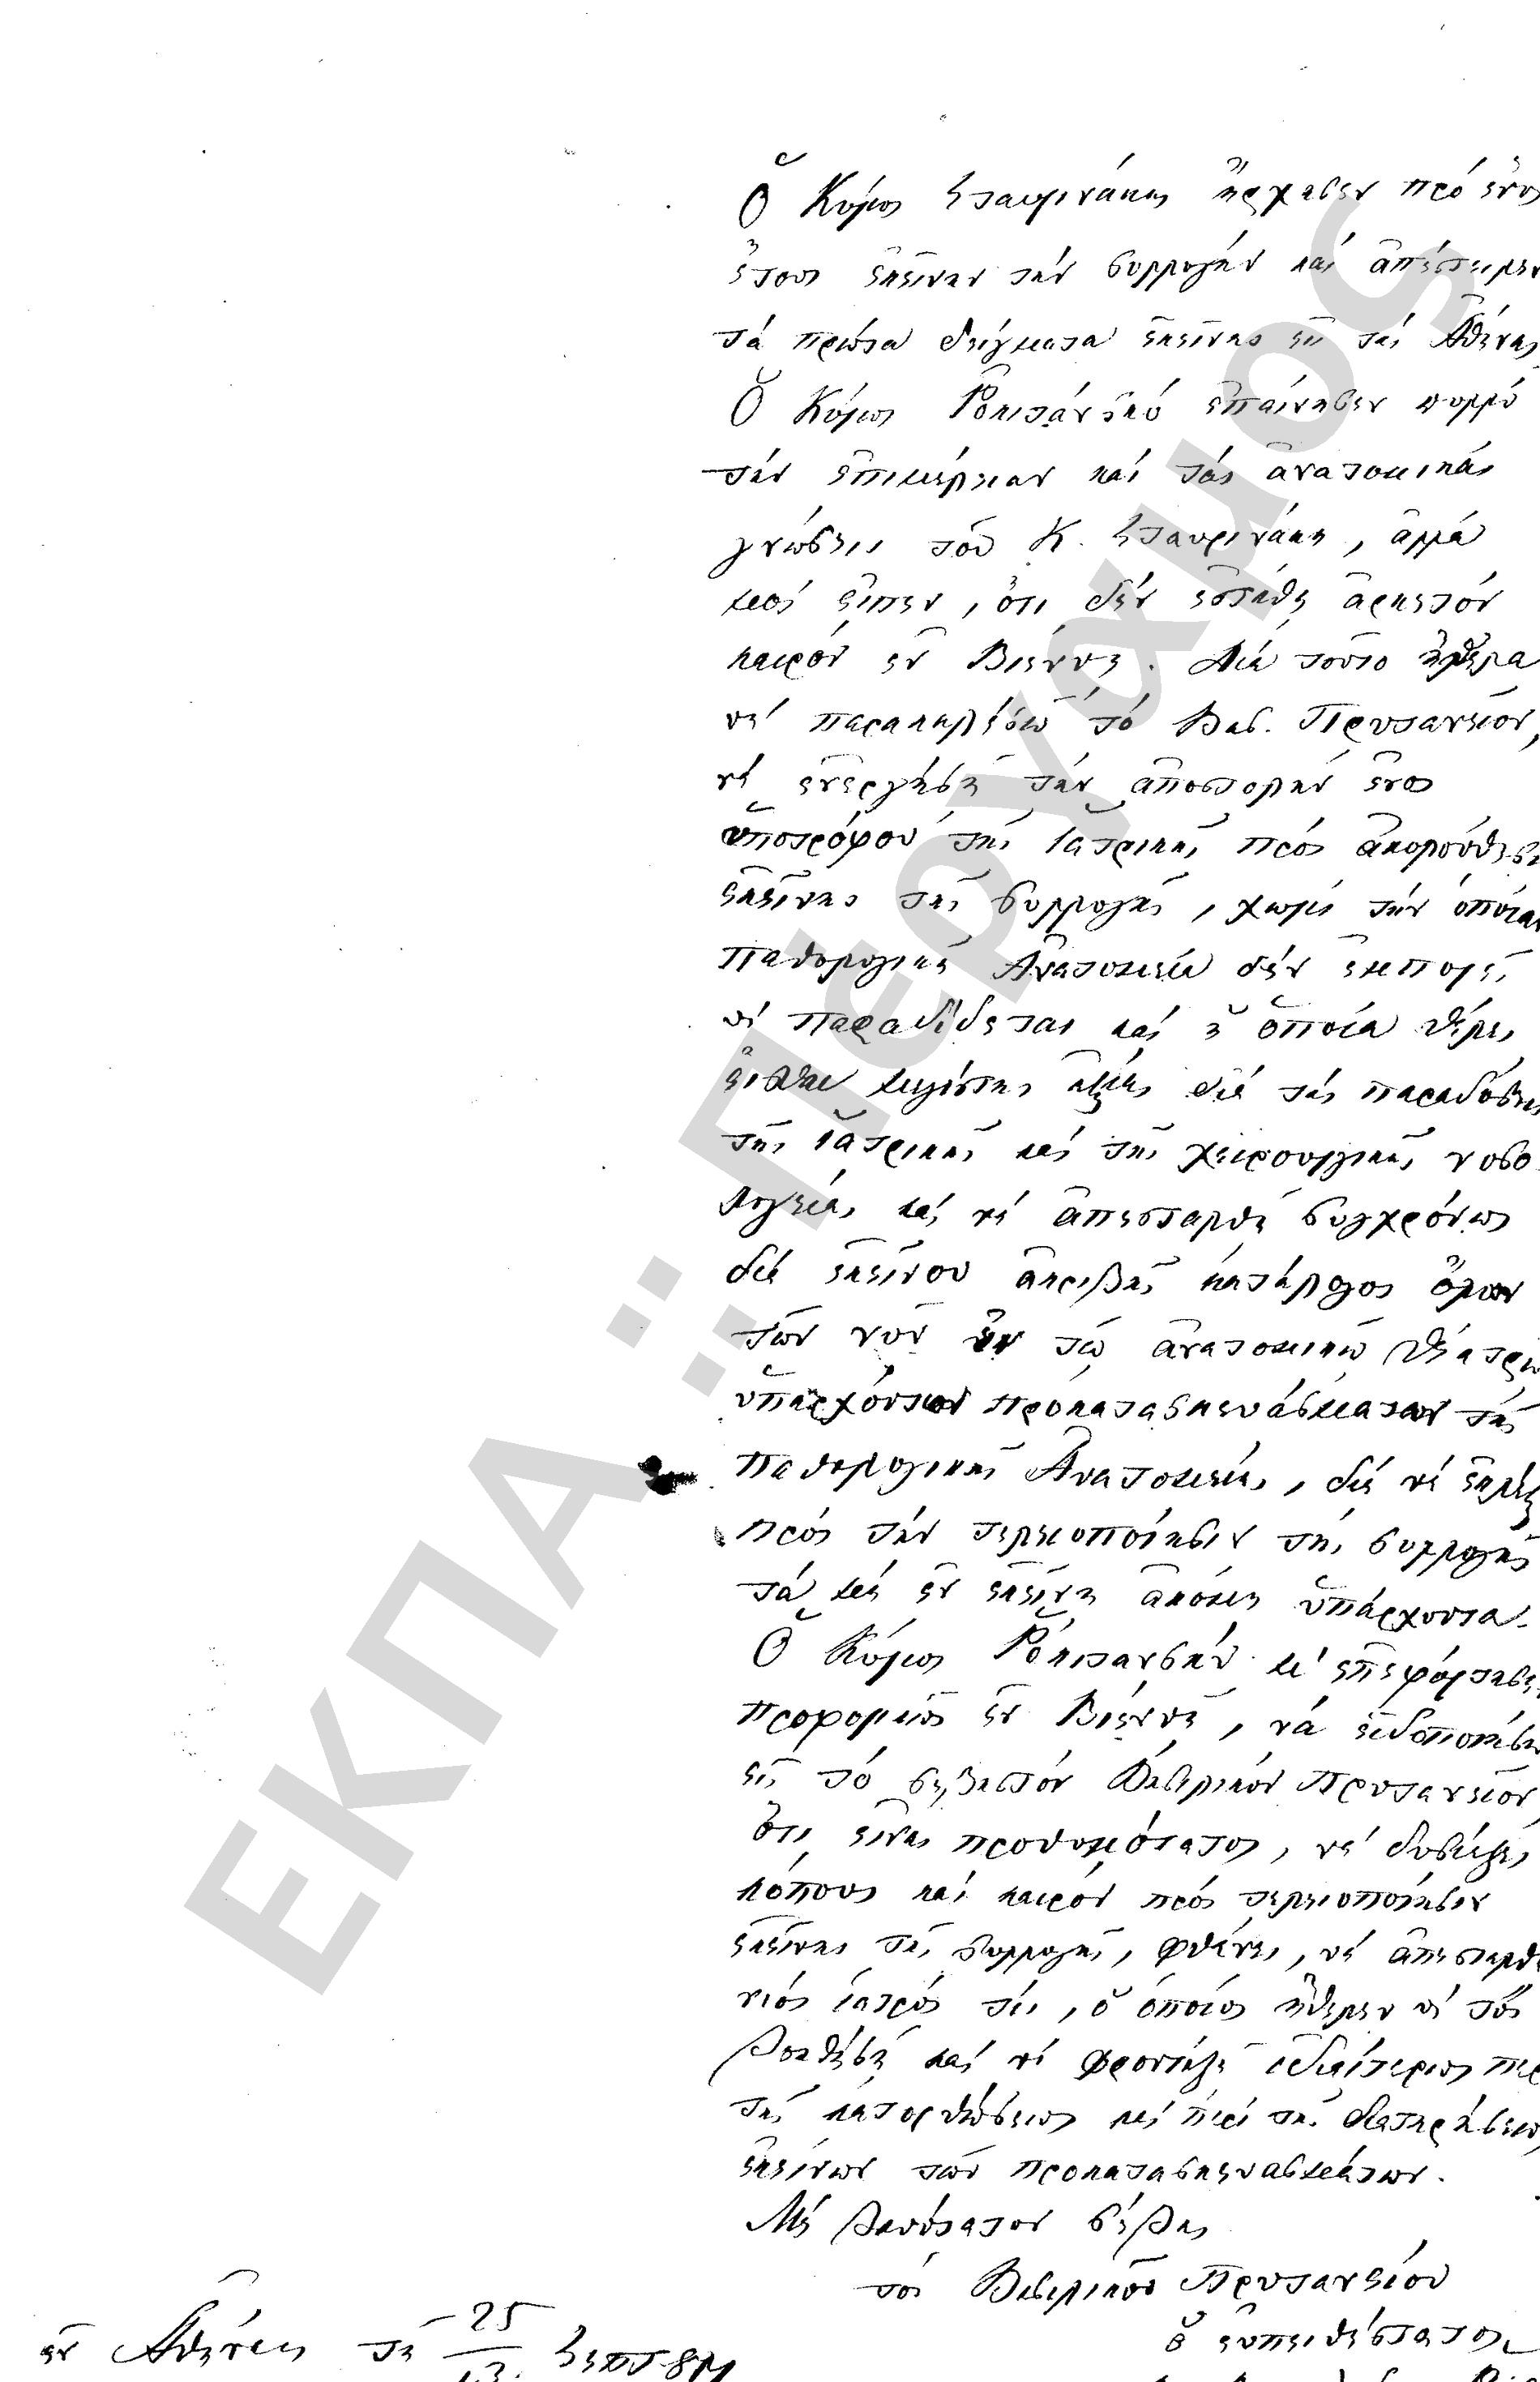 Ὁ Κύριος Σταυρινάκης ἤρχησεν πρό ἑνος
ἔτους ἐκείνην τήν συλλογήν καί ἀπέστειλεν
τά πρῶτα δείγματα ἐκείνης εἰς τάς Ἀθήνας
Ὁ Κύριος Ῥοκιτάνσκύ ἐπαίνησεν πολλύ
τήν ἐπιμέλειαν καί τάς ἀνατομικάς
γνώσεις τοῦ Κ. Σταυρινάκη, ἀλλά
μοί εἶπεν, ὅτι δέν ἐστάθη ἀρκετόν
καιρόν ἐν Βιέννῃ. Διά τοῦτο ἤθελα
νά παρακαλέσω τό Βασ. Πρυτανεῖον,
νά ἐνεργήσῃ τήν ἀποστολήν ἑνος
ὑποτρόφου τῆς Ἰατρικῆς πρός ἀκολούθησι
ἐκείνης τῆς συλλογῆς, χωρίς τήν ὁποίαν
Παθολογική Ἀνατομία δέν ἐμπορεῖ
νά παραδίδεται καί ἡ ὁποία θέλει
εἶσθαι μεγίστης ἀξίας διά τάς παραδόσεις
τῆς ἰατρικῆς καί τῆς χειρουργικῆς νοσο
λογείας καί νά ἀπεσταλθῇ συγχρόνως
διά ἐκείνου ἀκριβής κατάλογος ὅλων
τῶν νῦν ἐν τῷ ἀνατομικῷ θεάτρῳ
ὑπαρχόντων προκατασκευάσματων τῆς
Παθολογικῆς Ἀνατομείας, διά νά ἐκλέξ
πρός τήν τελειοποίησιν τῆς συλλογῆς
τά μή ἐν ἐκείνῃ ἀκόμη ὑπάρχοντα.
Ὁ Κύριος Ῥοκιτανσκύ μέ ἐπεφόρτησε
προφορικῶς ἐν Βιέννῃ, νά εἰδοποιήσω
εἰς τό σεβαστόν Βασιλικόν Πρυτανεῖον,
ὅτι εἶναι προθυμότατος, νά δυσιάσῃ
κόπους καί καιρόν πρός τελειοποίησιν
ἐκείνης τῆς συλλογῆς, φθάνει, νά ἀπεσταλθῇ
νέος ἰατρός τις, ὁ ὁποῖος ἤθελεν νά τόν
βοηθήσῃ καί νά φροντίσῃ ἰδιαίτερως περ
τῆς κατορθώσεως καί περί τῆς διατηρήσεως
ἐκείνων τῶν προκατασκευασμάτων.
Μέ βαθύτατον σέβας
τοῦ Βασιλικοῦ Πρυτανείου
ὁ εὐπειθέστατος
ἐν Ἀθήναις τῇ 25/13. Σεπτ